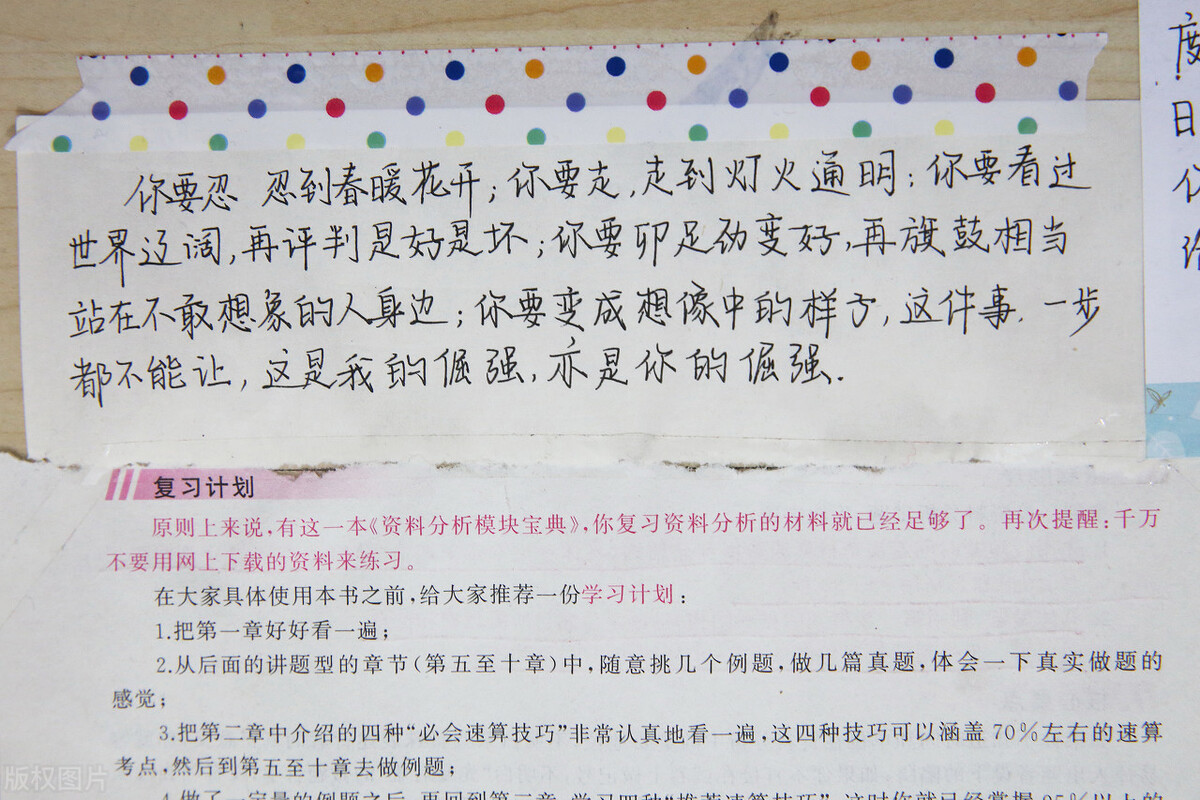 你要忍 忍到春暖花开;你要走,走到灯火通明;你要看过
世界辽阔,再评判是好是坏;你要卯足劲变好,再旗鼓相当
站在不敢想象的人身边;你要变成想像中的样子,这件事.一步
都不能让,这是我的倔强,亦是你的倔强.
度
日
复习计划
原则上来说,有这一本《资料分析模块宝典》,你复习资料分析的材料就已经足够了。再次提醒:千万
不要用网上下载的资料来练习。
在大家具体使用本书之前,给大家推荐一份学习计划:
1.把第一章好好看一遍;
2.从后面的讲题型的章节(第五至十章)中,随意挑几个例题,做几篇真题,体会一下真实做题的
感觉;
3.把第二章中介绍的四种“必会速算技巧”非常认真地看一遍,这四种技巧可以涵盖70%左右的速算
考点,然后到第五至十章去做例题;
4.做了一定量的例题之后,再回到第二章,学习四种“推荐速算技巧”,这时你就已经掌握95%以上的
版权图片